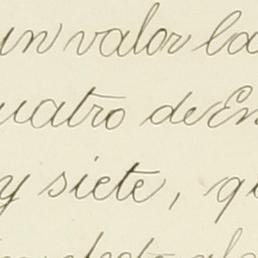 un valor la
cuatro de En
y siete, q